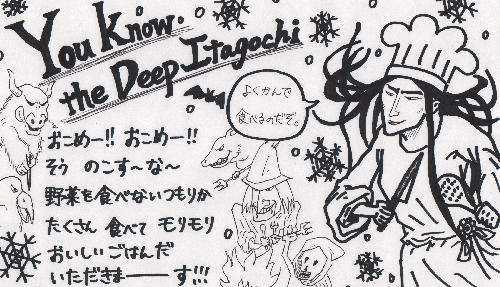 You Know.
the Deep Itagochi
よくかんで
食べるのだぞ。
おこめー!! おこめー!!
そう のこす〜な〜
野菜を食べないつもりか
たくさん 食べて モリモリ
おいしいごはんだ
いただきまーーす!!!